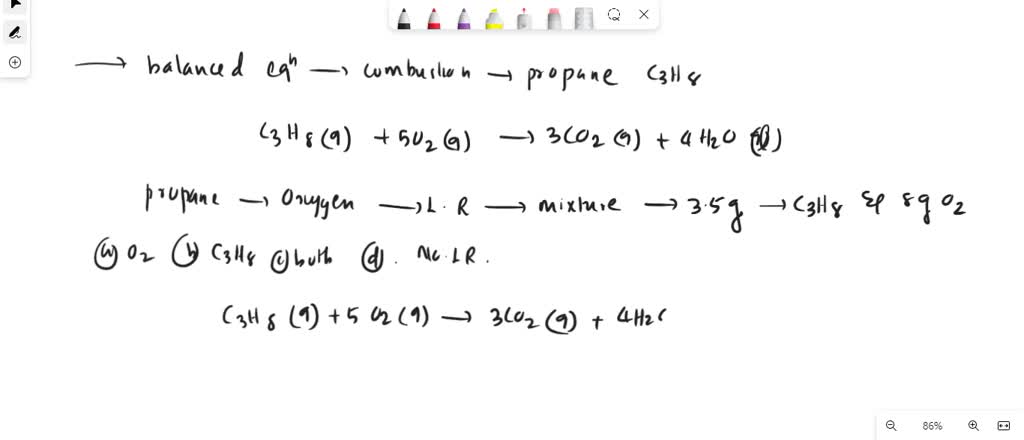 → balanced eqn → combustion → propane C3H8
C3H8(g) + 5O2(g) → 3CO2(g) + 4H2O(l)
propane → Oxygen → L.R → mixture → 3.5g → C3H8 & 8g O2
(a) O2 (b) C3H8 (c) both (d). No LR.
C3H8(g) + 5O2(g) → 3CO2(g) + 4H2(
86%